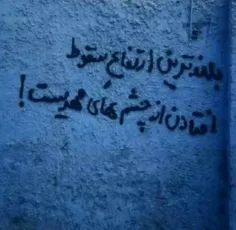 بلندترین ارتفاع سقوط
افتادن از چشم های مهدیست!